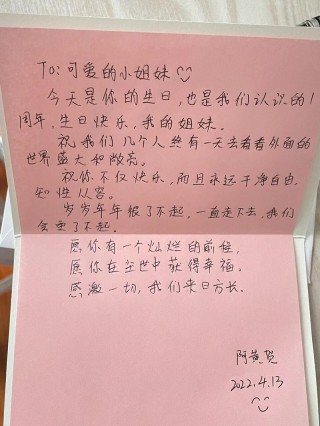 To:可爱的小姐妹
今天是你的生日,也是我们认识的1
周年,生日快乐,我的姐妹。
祝我们几个人终有一天去看看外面的
世界盛大和敞亮。
祝你不仅快乐,而且永远干净自由,
知性从容。
岁岁年年很了不起,一直走下去,我们
会更了不起。
愿你有一个灿烂的前程,
愿你在尘世中获得幸福。
感激一切,我们来日方长。
阿黄贺
2022.4.13